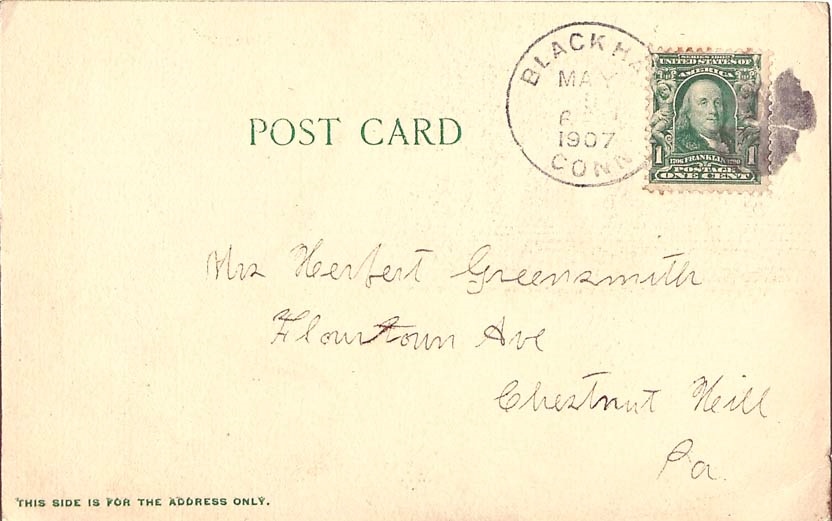 BLACK HA
MAY
1907
CONN
SERIES 1902
UNITED STATES OF
AMERICA
1 1
1706 FRANKLIN 1790
POSTAGE
ONE CENT
POST CARD
Mrs Herbert Greensmith
Flourtown Ave
Chestnut Hill
Pa.
THIS SIDE IS FOR THE ADDRESS ONLY.